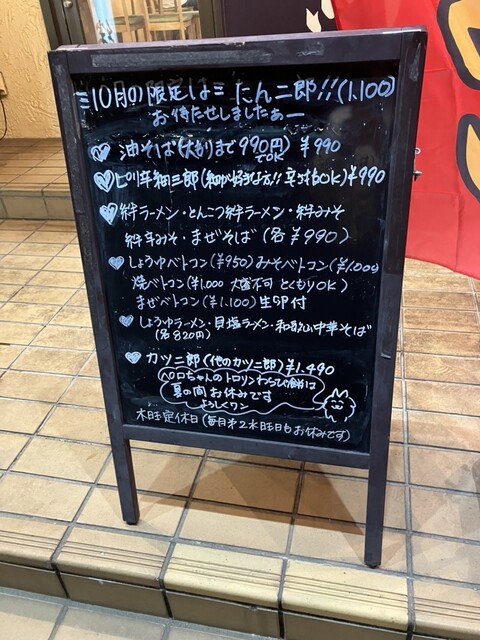 10月の限定は たん二郎!!(1,100)
お待たせしましたぁー
油そば(大もりまで990円でOK) ¥990
ピリ辛和三郎(和が好きな方!! 辛さもOK)¥990
絆ラーメン・とんこつ絆ラーメン・絆みそ
絆辛みそ・まぜそば(各¥990)
しょうゆベトコン(¥950)みそベトコン(¥1,000)
焼ベトコン(¥1,000 大盛不可 とくもりOK)
まぜベトコン(¥1,100)生卵付
しょうゆラーメン・貝塩ラーメン・和歌山中華そば
(各820円)
カツ二郎(他のカツ二郎)¥1,490
ペロちゃんのトロリンわらび餅は
夏の間お休みです
よろしくワン
木曜定休日(毎月第2水曜日もお休みです)